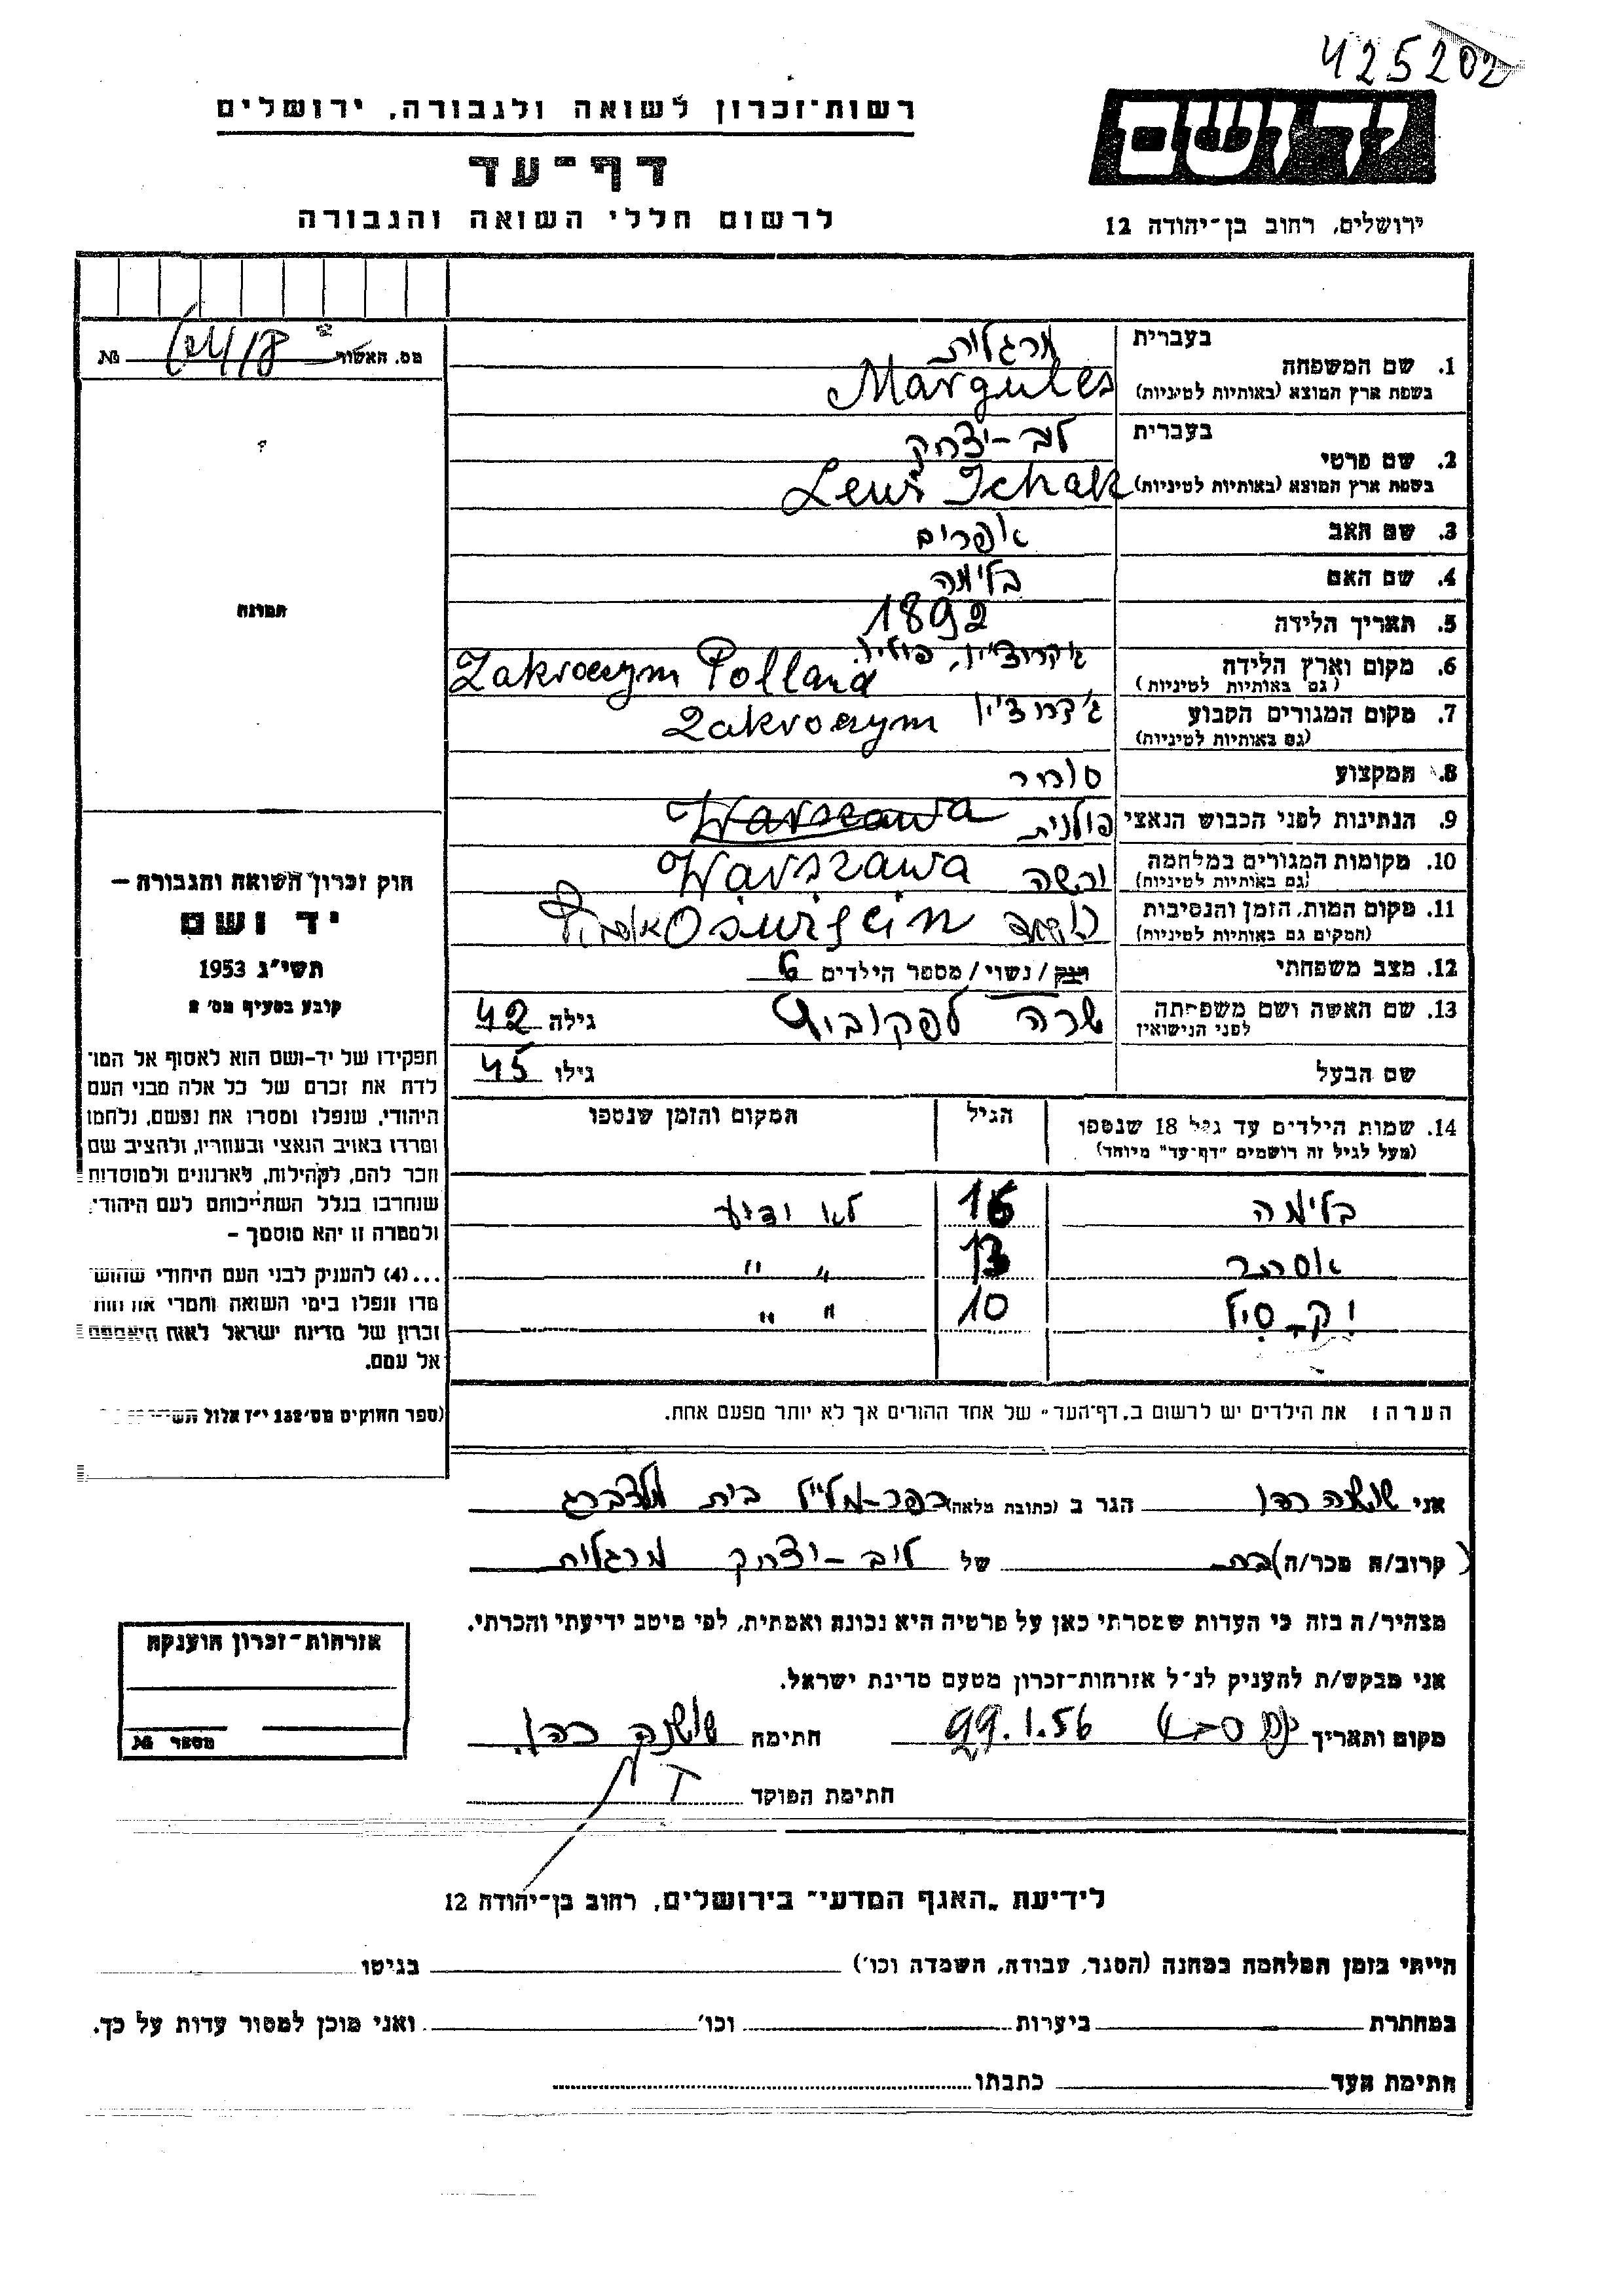 425202
יד ושם
רשות־זכרון לשואה ולגבורה, ירושלים
דף־עד
לרשום חללי השואה והגבורה
ירושלים, רחוב בן־יהודה 12
מס. האשור № 
1. שם המשפחה
בעברית מרגלית
בשפת ארץ המוצא (באותיות לטיניות) Margules
2. שם פרטי
בעברית לב-יצחק
בשפת ארץ המוצא (באותיות לטיניות) Ichak
3. שם האב אפרים
4. שם האם בלימה
5. תאריך הלידה 1892
6. מקום וארץ הלידה
(גם באותיות לטיניות) Polland
7. מקום המגורים הקבוע
(גם באותיות לטיניות)
8. המקצוע סוחר
9. הנתינות לפני הכבוש הנאצי פולנית Warszawa
10. מקומות המגורים במלחמה ורשה Warszawa
(גם באותיות לטיניות)
11. מקום המות, הזמן והנסיבות
(המקום גם באותיות לטיניות)
12. מצב משפחתי רוק / נשוי / מספר הילדים 6
13. שם האשה ושם משפחתה שרה גילה 42
לפני הנישואין
שם הבעל גילו 45
14. שמות הילדים עד גיל 18 שנספו הגיל המקום והזמן שנספו
(מעל לגיל זה רושמים "דף־עד" מיוחד)
בלימה 16 לא ידוע
אסתר 13 " "
10 " "
הערה: את הילדים יש לרשום ב„דף־העד" של אחד ההורים אך לא יותר מפעם אחת.
תמונה
חוק זכרון השואה והגבורה —
יד ושם
תשי״ג 1953
קובע בסעיף מס׳ 2
תפקידו של יד־ושם הוא לאסוף אל המו־
לדת את זכרם של כל אלה מבני העם
היהודי, שנפלו ומסרו את נפשם, נלחמו
ומרדו באויב הנאצי ובעוזריו, ולהציב שם
וזכר להם, לקהילות, לארגונים ולמוסדות
שנחרבו בגלל השתייכותם לעם היהודי;
ולמטרה זו יהא מוסמך –
...(4) להעניק לבני העם היהודי שהוש־
מדו ונפלו בימי השואה והמרי אזרחות
זכרון של מדינת ישראל לאות היאספם
אל עמם.
(ספר החוקים מס׳ 132 י״ז אלול
אני שושנה כהן הגר ב (כתובת מלאה) בית גולדברג
(קרוב/ה מכר/ה) בת של לוב-יצחק מרגלית
מצהיר/ה בזה כי העדות שמסרתי כאן על פרטיה היא נכונה ואמתית, לפי מיטב ידיעתי והכרתי.
אני מבקש/ת להעניק לנ״ל אזרחות־זכרון מטעם מדינת ישראל.
מקום ותאריך כפר סבא 29.1.56 חתימה שושנה כהן
חתימת הפוקד
אזרחות־זכרון הוענקה
מספר №
לידיעת „האגף המדעי״ בירושלים, רחוב בן־יהודה 12
הייתי בזמן המלחמה במחנה (הסגר, עבודה, השמדה וכו׳) בגיטו
במחתרת ביערות וכו׳ ואני מוכן למסור עדות על כך.
חתימת העד כתבתו